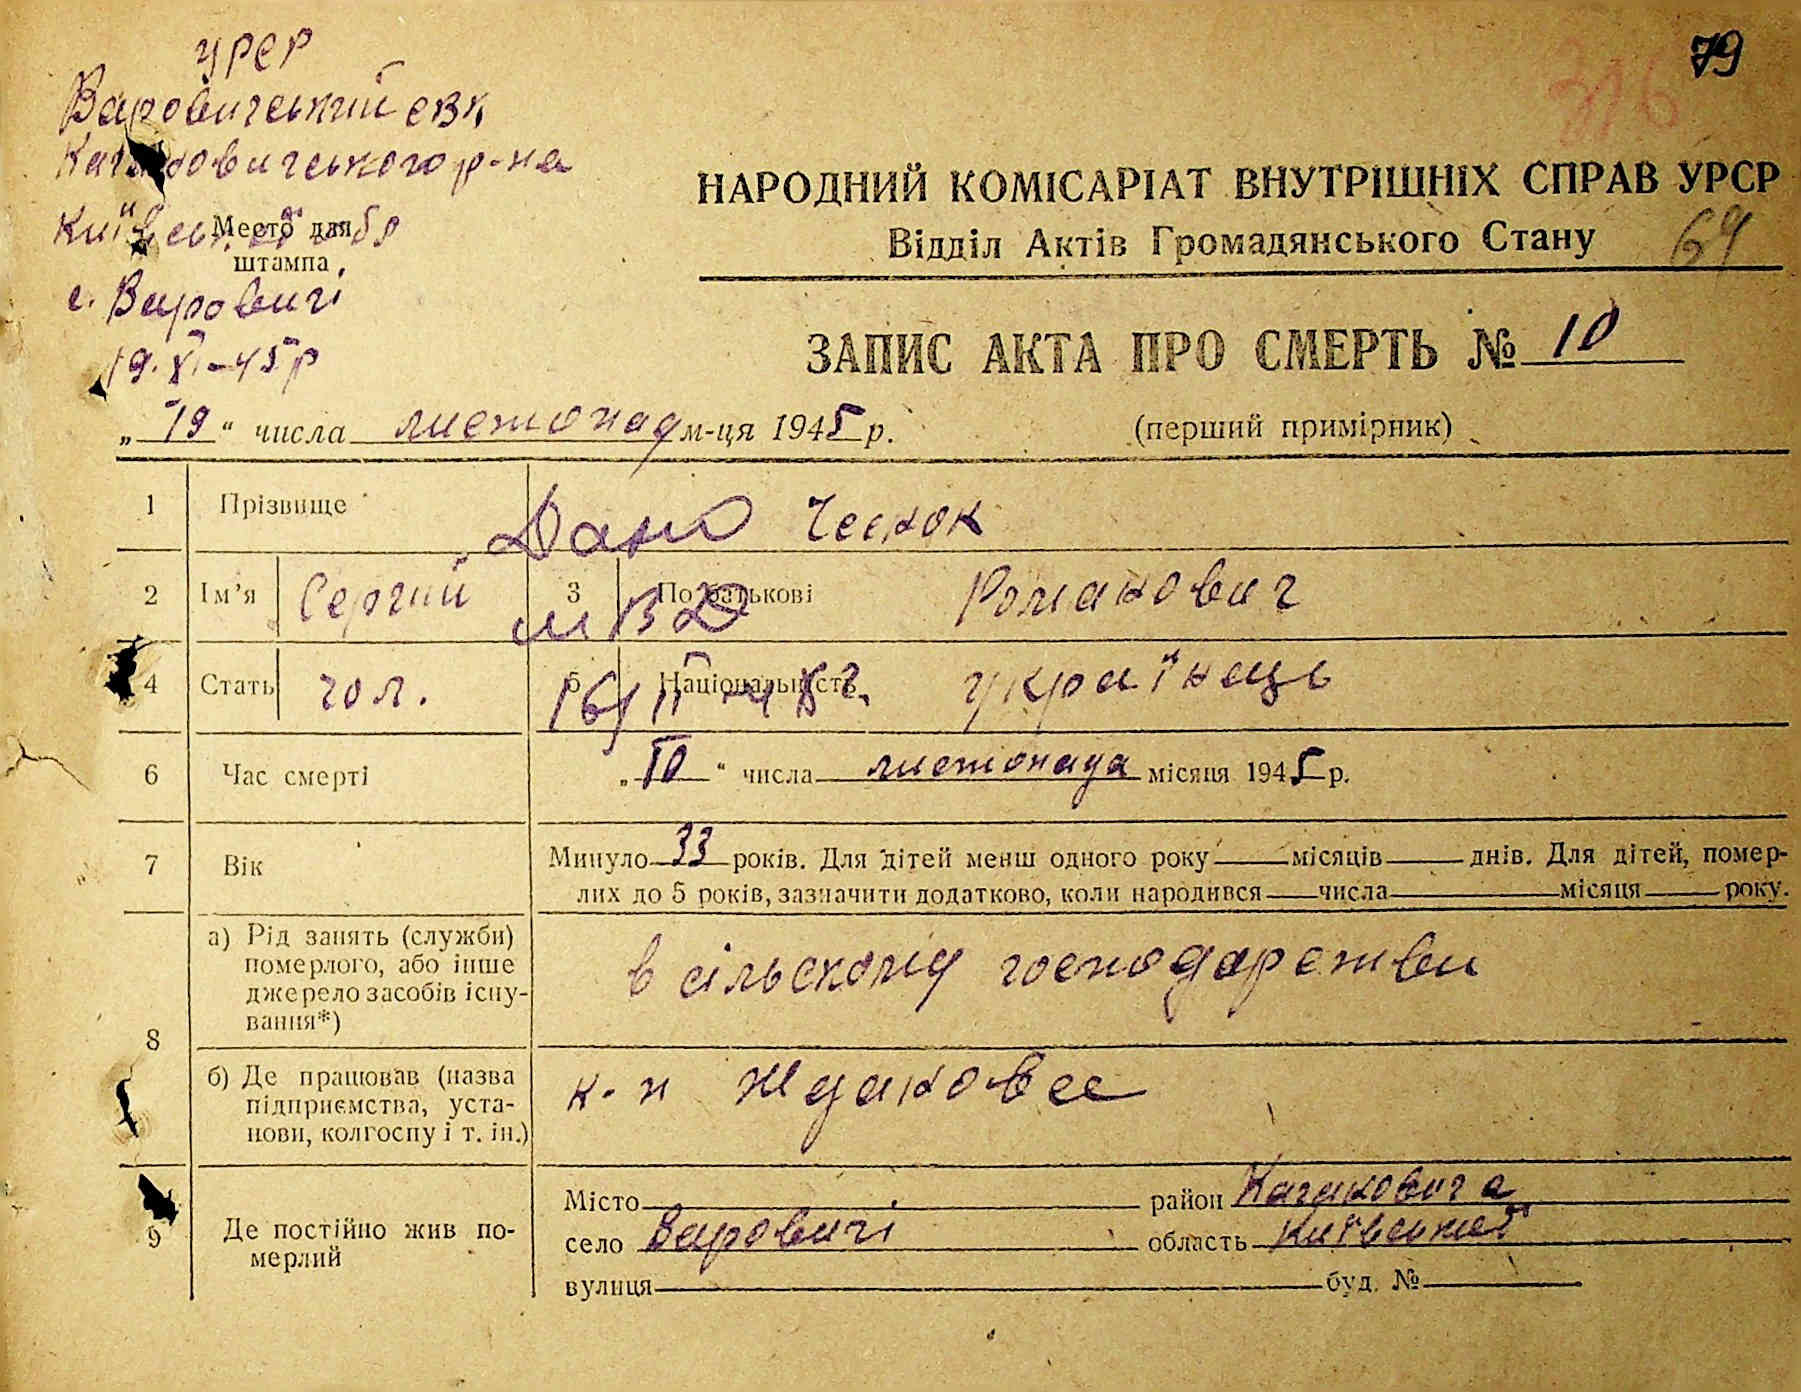 УРСР
79
316
Варовичський свк
Кагановичського р-на
Київськ. обл
Место для
штампа
с. Варовичі
19.XI-45р
НАРОДНИЙ КОМІСАРІАТ ВНУТРІШНІХ СПРАВ УРСР
Відділ Актів Громадянського Стану 69
ЗАПИС АКТА ПРО СМЕРТЬ № 10
„19“ числа листопад м-ця 1945 р.
(перший примірник)
1 Прізвище Чеснок
Дано
2 Ім’я Сергий 3 По батькові Романович
МВД
4 Стать чол. 5 Національність українець
16/II-48г.
6 Час смерті „10“ числа листопада місяця 1945 р.
7 Вік Минуло 33 років. Для дітей менш одного року місяців днів. Для дітей, помер-
лих до 5 років, зазначити додатково, коли народився числа місяця року.
8 а) Рід занять (служби)
померлого, або інше
джерело засобів існу-
вання*)
в сільскому господарстви
б) Де працював (назва
підприємства, уста-
нови, колгоспу і т. ін.)
к-п Ждановее
9 Де постійно жив по-
мерлий
Місто район Кагановича
село Варовичі область Київський
вулиця буд. №